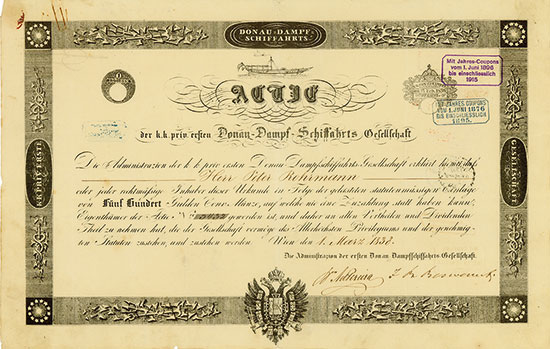 DONAU-DAMPF-
SCHIFFAHRTS
Mit Jahres-Coupons
vom 1. Juni 1896
bis einschliesslich
1915
ACTIE
MIT JAHRES-COUPONS
VOM 1. JUNI 1876
BIS EINSCHLIESSLICH
1895.
der k.k. priv. ersten Donau-Dampf-Schiffahrts Gesellschaft
K.K. PRIV. ERSTE
GESELLSCHAFT
Die Administrazion der k.k. priv. ersten Donau Dampfschiffahrts Gesellschaft erklärt hiermit, daß
Herr Peter Rohrmann
oder jeder rechtmäßige Inhaber dieser Urkunde in Folge der geleisteten statutenmässigen Einlage
von Fünf Hundert Gulden Conv. Münze, auf welche nie eine Zuzahlung statt haben kann,
Eigenthümer der Actie N° geworden ist, und daher an allen Vortheilen und Dividenden
Theil zu nehmen hat, die der Gesellschaft vermöge des Allerhöchsten Privilegiums und der genehmigten
Statuten zustehen, und zustehen werden. Wien den 1. März 1838.
Die Administrazion der ersten Donau Dampfschiffahrts Gesellschaft.